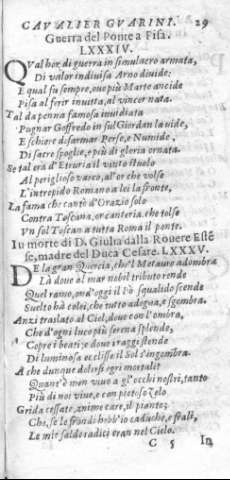 CAVALIER GVARINI. 29
Guerra del Ponte a Pisa.
LXXXIV.
QVal hor, di guerra in simulacro armata,
Di valor indiuisa Arno diuide:
E qual fu sempre, oue più Marte ancide
Pisa al ferir inuitta, al vincer nata.
Tal da penna famosa inuidiata
Pugnar Goffredo in sul Giordan la vide,
E schiere disarmar Perse, e Numide,
Di sacre spoglie, e più di gloria ornata.
Se tal era d'Etruria il vinto stuolo
Al periglioso varco, al'or che volse
L'intrepido Romano a lei la fronte,
La fama che cantò d'Orazio solo
Contra Toscana, or canteria, che tolse
Vn sol Toscan a tutta Roma il ponte.
In morte di D. Giulia dalla Rouere Este
se, madre del Duca Cesare. LXXXV.
DE la gran Quercia, che'l Metauro adombra
Là doue al mar nobil tributo rende
Quel ramo, ond'oggi il Pò squalido scende
Suelto hà colei, che tutto adegua, e sgombra.
Anzi traslato al Ciel, doue con l'ombra,
Che d'ogni luce più serena splende,
Copre i beati; e doue i raggi stende
Di luminosa ecclisse il Sol s'ingombra.
A che dunque dolersi egri mortali?
Quant'è men viuo a gl'occhi nostri, tanto
Più di noi viue, e con pietoso zelo
Grida cessate, anime care, il pianto;
Che, se le frondi hebb'io caduche, e frali,
Le mie salde radici eran nel Cielo.
C 5 In